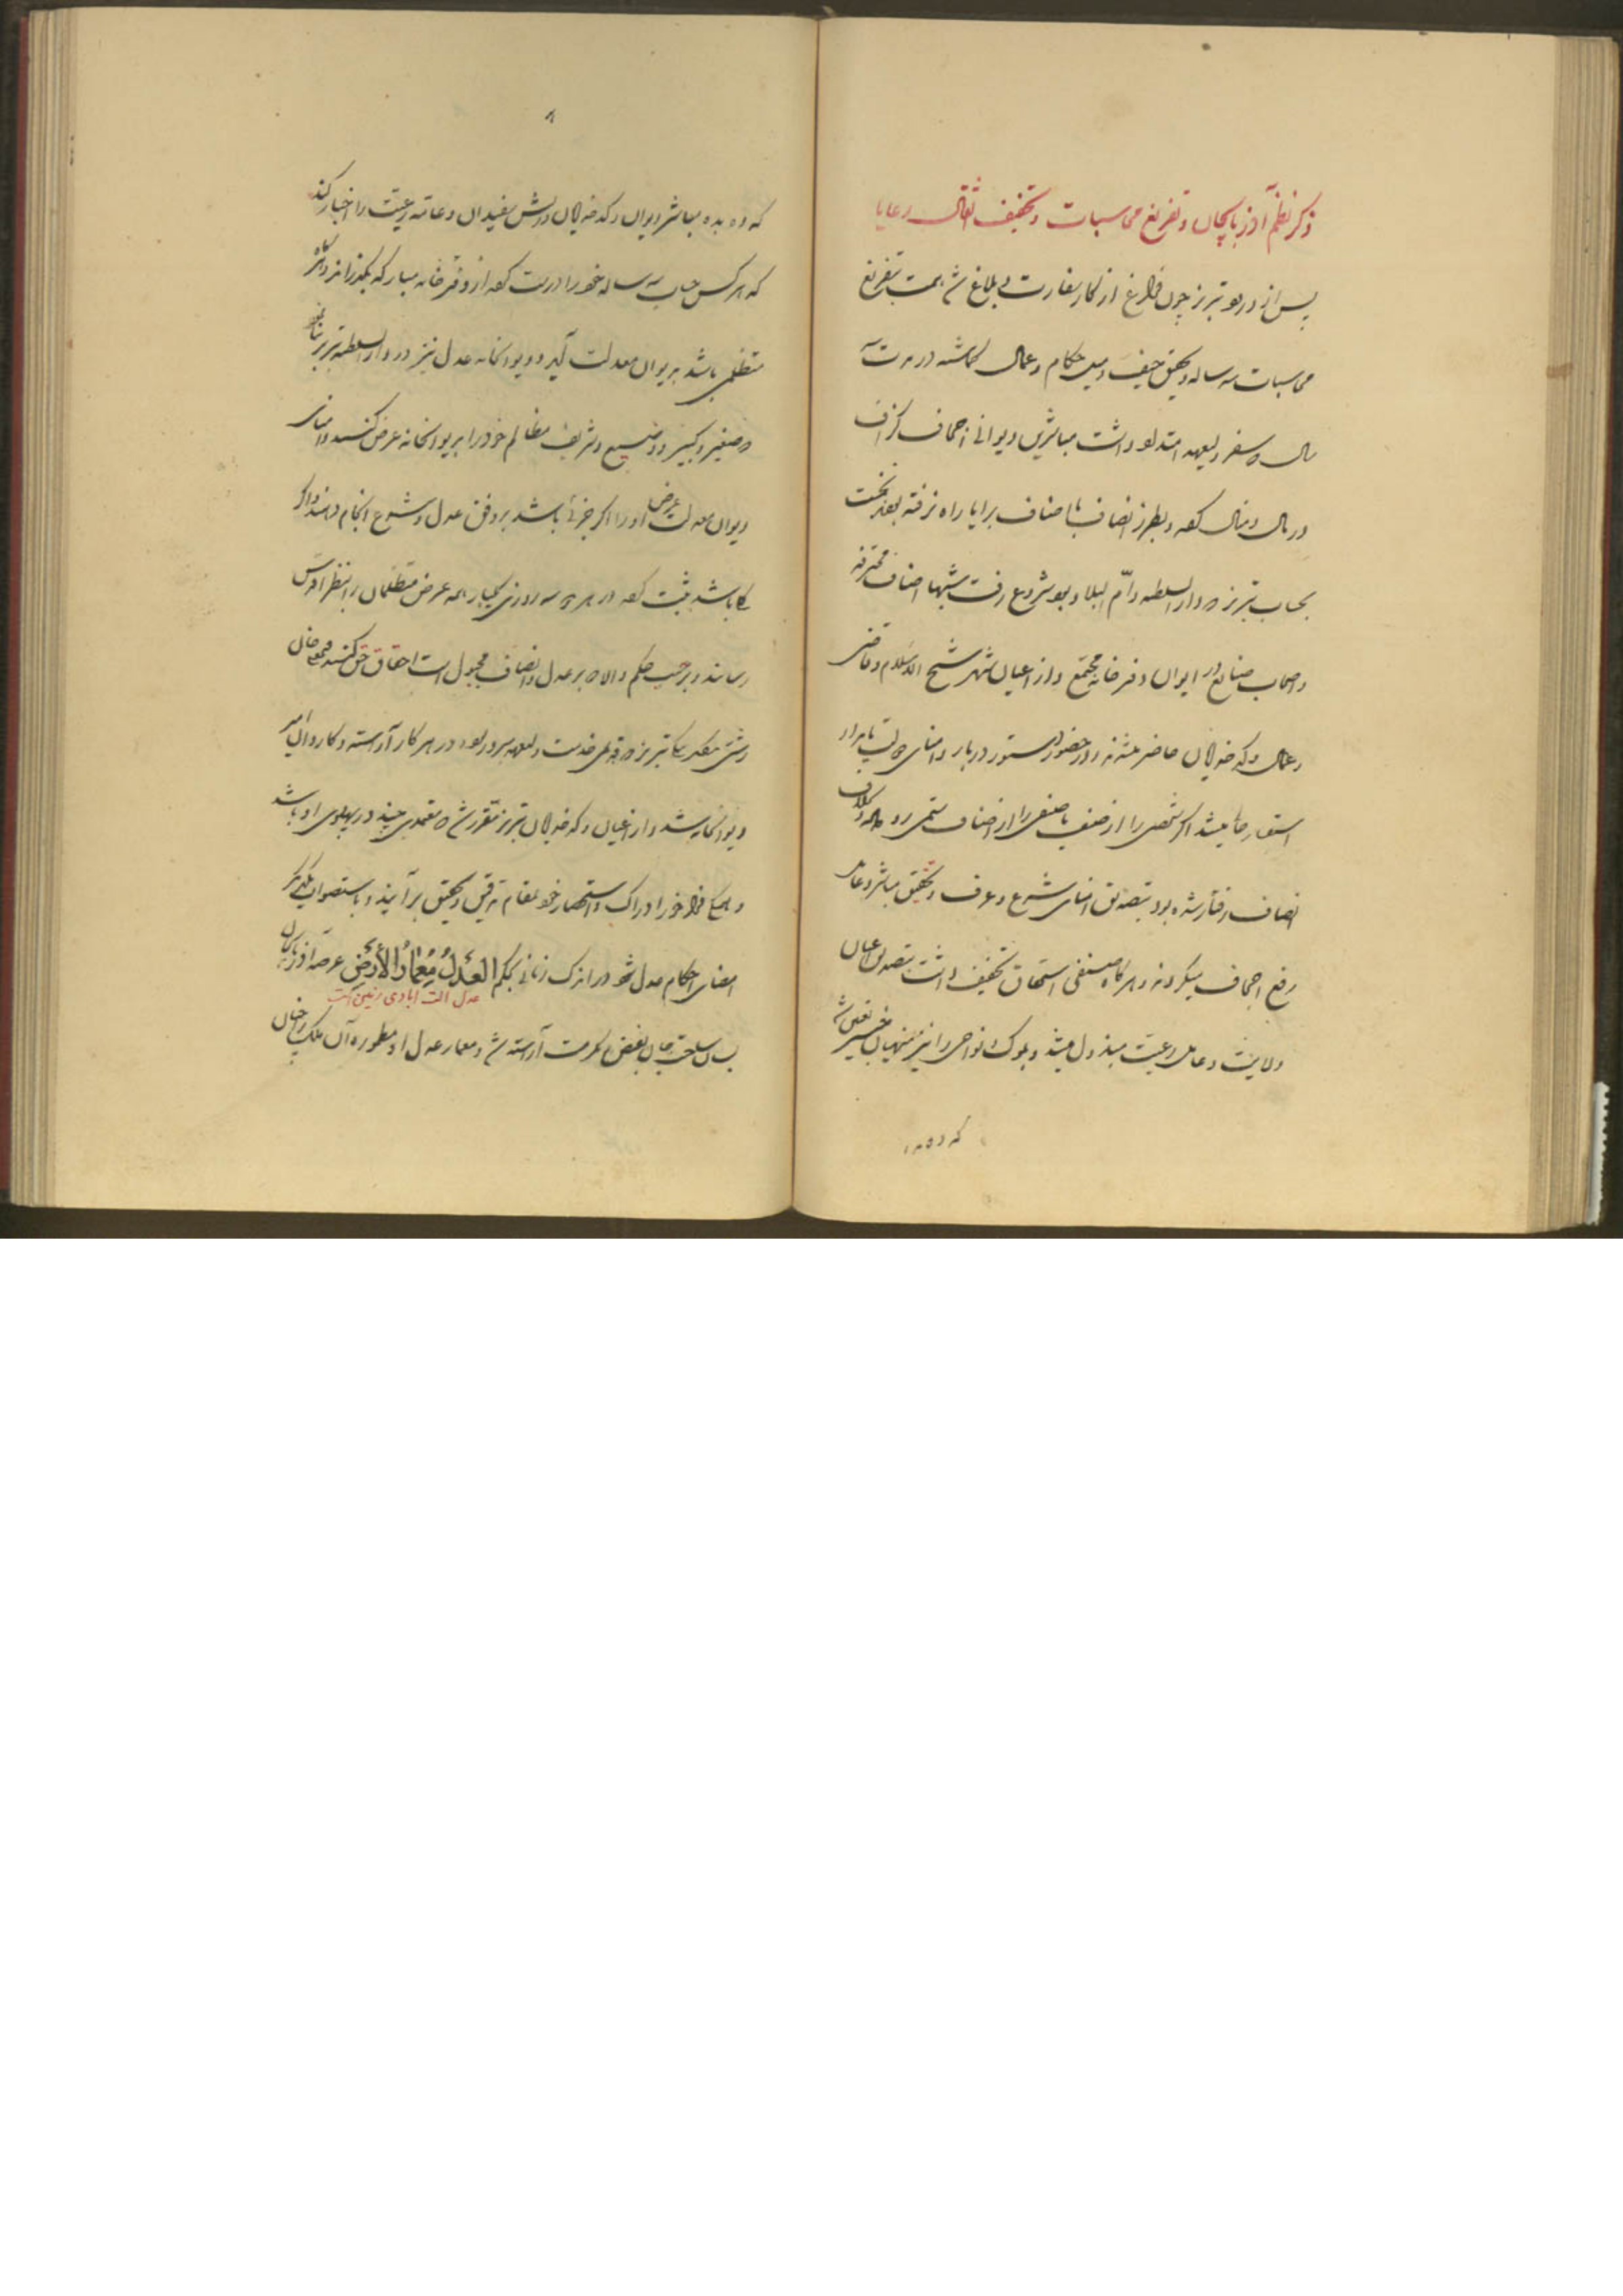 ذکر نظم آذربایجان و تفریغ محاسبات و تخفیف ثقال رعایا
پس از ورود تبریز چون فراغ از کار سفارت و ابلاغ شد همت بتفریغ
محاسبات سه ساله و تحقیق حیف و میل حکام و عمال گماشته در مدت سه
سال که سفر ولیعهد امتداد داشت مباشرین دیوانی اجحاف و گزاف
در مال و منال کرده و بطرز انصاف با اصناف برایا راه نرفته بودند نخست
بحساب تبریز که دار السلطنه و ام البلاد بود شروع رفت شبها اصناف محترفه
و اصحاب صنایع در ایوان دفترخانه مجتمع و از اعیان شهر شیخ الاسلام و قاضی
و عمال و کدخدایان حاضر میشدند و در حضور دستور دربار و امنای دولت پایدار
استفسار حال میشد اگر شخصی را از صنف یا صنفی را از اصناف ستمی رو داده و بخلاف
انصاف رفتار شده بود بتصدیق امنای شرع و عرف و تحقیق مباشر و عامل
رفع اجحاف میکردند و هرگاه صنفی استحقاق تخفیف داشت بتصدیق اعیان
ولایت و عامل رعیت مبذول میشد و بلوک و نواحی را نیز منهیان خبیر تعیین شد
که ده بده
که ده بده مباشر دیوان و کدخدایان و ریش سفیدان و عامه رعیت را اخبار کنند
که هر کس حساب سه ساله خود را درست کرده از دفترخانه مبارکه بگذراند و اگر
متظلمی باشد بدیوان معدلت آید و دیوانخانه عدل نیز در دار السلطنه تبریز بنا نمود
که صغیر و کبیر و وضیع و شریف مظالم خود را بدیوانخانه عرض کنند و امنای
دیوان معدلت عرض او را اگر جزئی باشد بر وفق عدل و شرع انجام دهند و اگر
کلی باشد ثبت کرده در هر سه روزی یکبار همه عرض متظلمان را بنظر اقدس
رسانند و بر حسب حکم والا که بر عدل و انصاف مجبول است احقاق حق کنند
تبریز که خدمت ولیعهد بسر برده و در هر کار آراسته و کاردان امیر
دیوانخانه شد و از اعیان و کدخدایان تبریز مقرر شد که معتمدی چند در پهلوی او باشد
و هر یک فراخور ادراک و استحضار خود بمقام تدقیق و تحقیق برآیند و باستصواب یکدیگر
امضای احکام عدل شود در اندک زمانی بحکم العدل معمار الارض عرصه آذربایجان
عدل آلت آبادی زمین است
بسان ساحت جنان بفیض مکرمت آراسته شد و معمار عدل او مطموره آن ملک را چنان